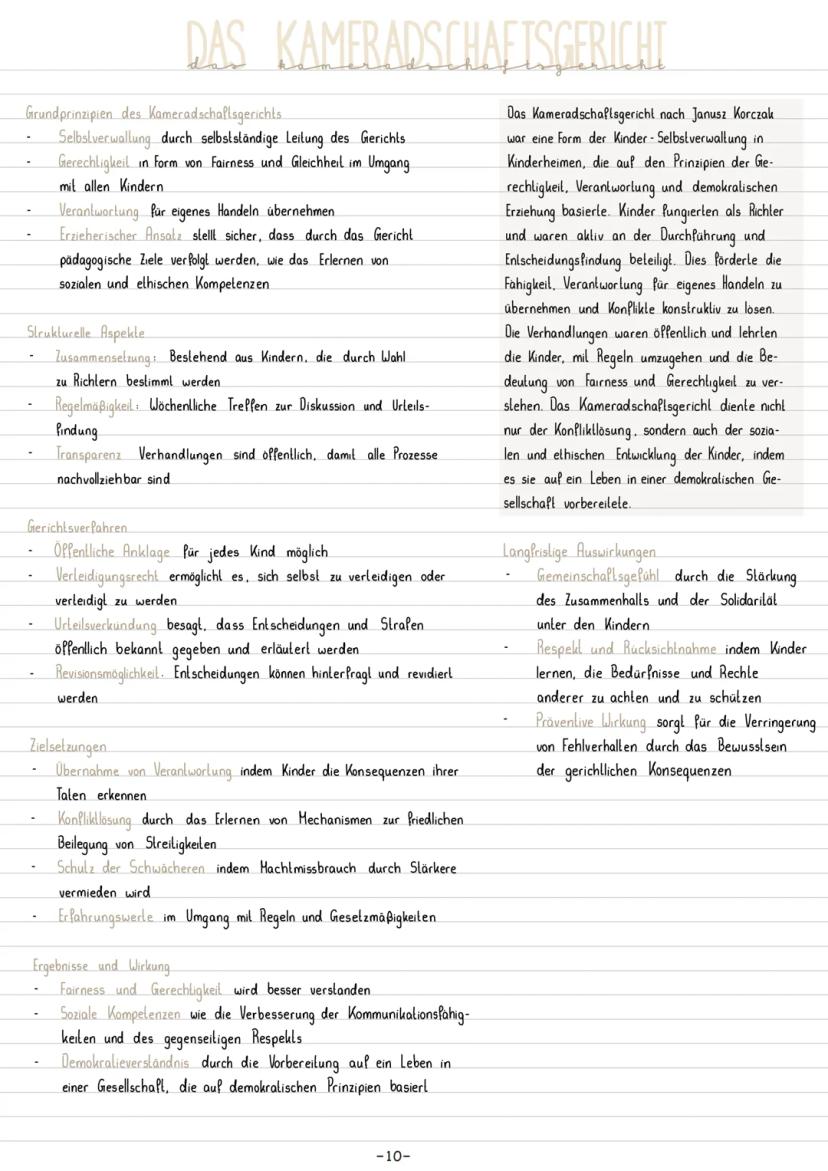 DAS KAMERADSCHAFTSGERICHT
das kameradschaftsgericht
Grundprinzipien des Kameradschaftsgerichts
- Selbstverwaltung durch selbstständige Leitung des Gerichts
- Gerechtigkeit in Form von Fairness und Gleichheit im Umgang
mit allen Kindern
- Verantwortung für eigenes Handeln übernehmen
- Erzieherischer Ansatz stellt sicher, dass durch das Gericht
pädagogische Ziele verfolgt werden, wie das Erlernen von
sozialen und ethischen Kompetenzen
Strukturelle Aspekte
- Zusammensetzung: Bestehend aus Kindern, die durch Wahl
zu Richtern bestimmt werden
- Regelmäßigkeit: Wöchentliche Treffen zur Diskussion und Urteils-
findung
- Transparenz Verhandlungen sind öffentlich, damit alle Prozesse
nachvollziehbar sind
Gerichtsverfahren
- Öffentliche Anklage für jedes Kind möglich
- Verteidigungsrecht ermöglicht es, sich selbst zu verteidigen oder
verteidigt zu werden
- Urteilsverkündung besagt, dass Entscheidungen und Strafen
öffentlich bekannt gegeben und erläutert werden
- Revisionsmöglichkeit. Entscheidungen können hinterfragt und revidiert
werden
Zielsetzungen
- Übernahme von Verantwortung indem Kinder die Konsequenzen ihrer
Taten erkennen
- Konfliktlösung durch das Erlernen von Mechanismen zur friedlichen
Beilegung von Streitigkeiten
- Schutz der Schwächeren indem Machtmissbrauch durch Stärkere
vermieden wird
- Erfahrungswerte im Umgang mit Regeln und Gesetzmäßigkeiten
Ergebnisse und Wirkung
- Fairness und Gerechtigkeit wird besser verstanden
- Soziale Kompetenzen wie die Verbesserung der Kommunikationsfähig-
keiten und des gegenseitigen Respekts
- Demokratieverständnis durch die Vorbereitung auf ein Leben in
einer Gesellschaft, die auf demokratischen Prinzipien basiert
Das Kameradschaftsgericht nach Janusz Korczak
war eine Form der Kinder-Selbstverwaltung in
Kinderheimen, die auf den Prinzipien der Ge-
rechtigkeit, Verantwortung und demokratischen
Erziehung basierte. Kinder fungierten als Richter
und waren aktiv an der Durchführung und
Entscheidungsfindung beteiligt. Dies förderte die
Fähigkeit, Verantwortung für eigenes Handeln zu
übernehmen und Konflikte konstruktiv zu lösen.
Die Verhandlungen waren öffentlich und lehrten
die Kinder, mit Regeln umzugehen und die Be-
deutung von Fairness und Gerechtigkeit zu ver-
stehen. Das Kameradschaftsgericht diente nicht
nur der Konfliktlösung, sondern auch der sozia-
len und ethischen Entwicklung der Kinder, indem
es sie auf ein Leben in einer demokratischen Ge-
sellschaft vorbereitete.
Langfristige Auswirkungen
- Gemeinschaftsgefühl durch die Stärkung
des Zusammenhalts und der Solidarität
unter den Kindern
- Respekt und Rücksichtnahme indem Kinder
lernen, die Bedürfnisse und Rechte
anderer zu achten und zu schützen
- Präventive Wirkung sorgt für die Verringerung
von Fehlverhalten durch das Bewusstsein
der gerichtlichen Konsequenzen
-10-